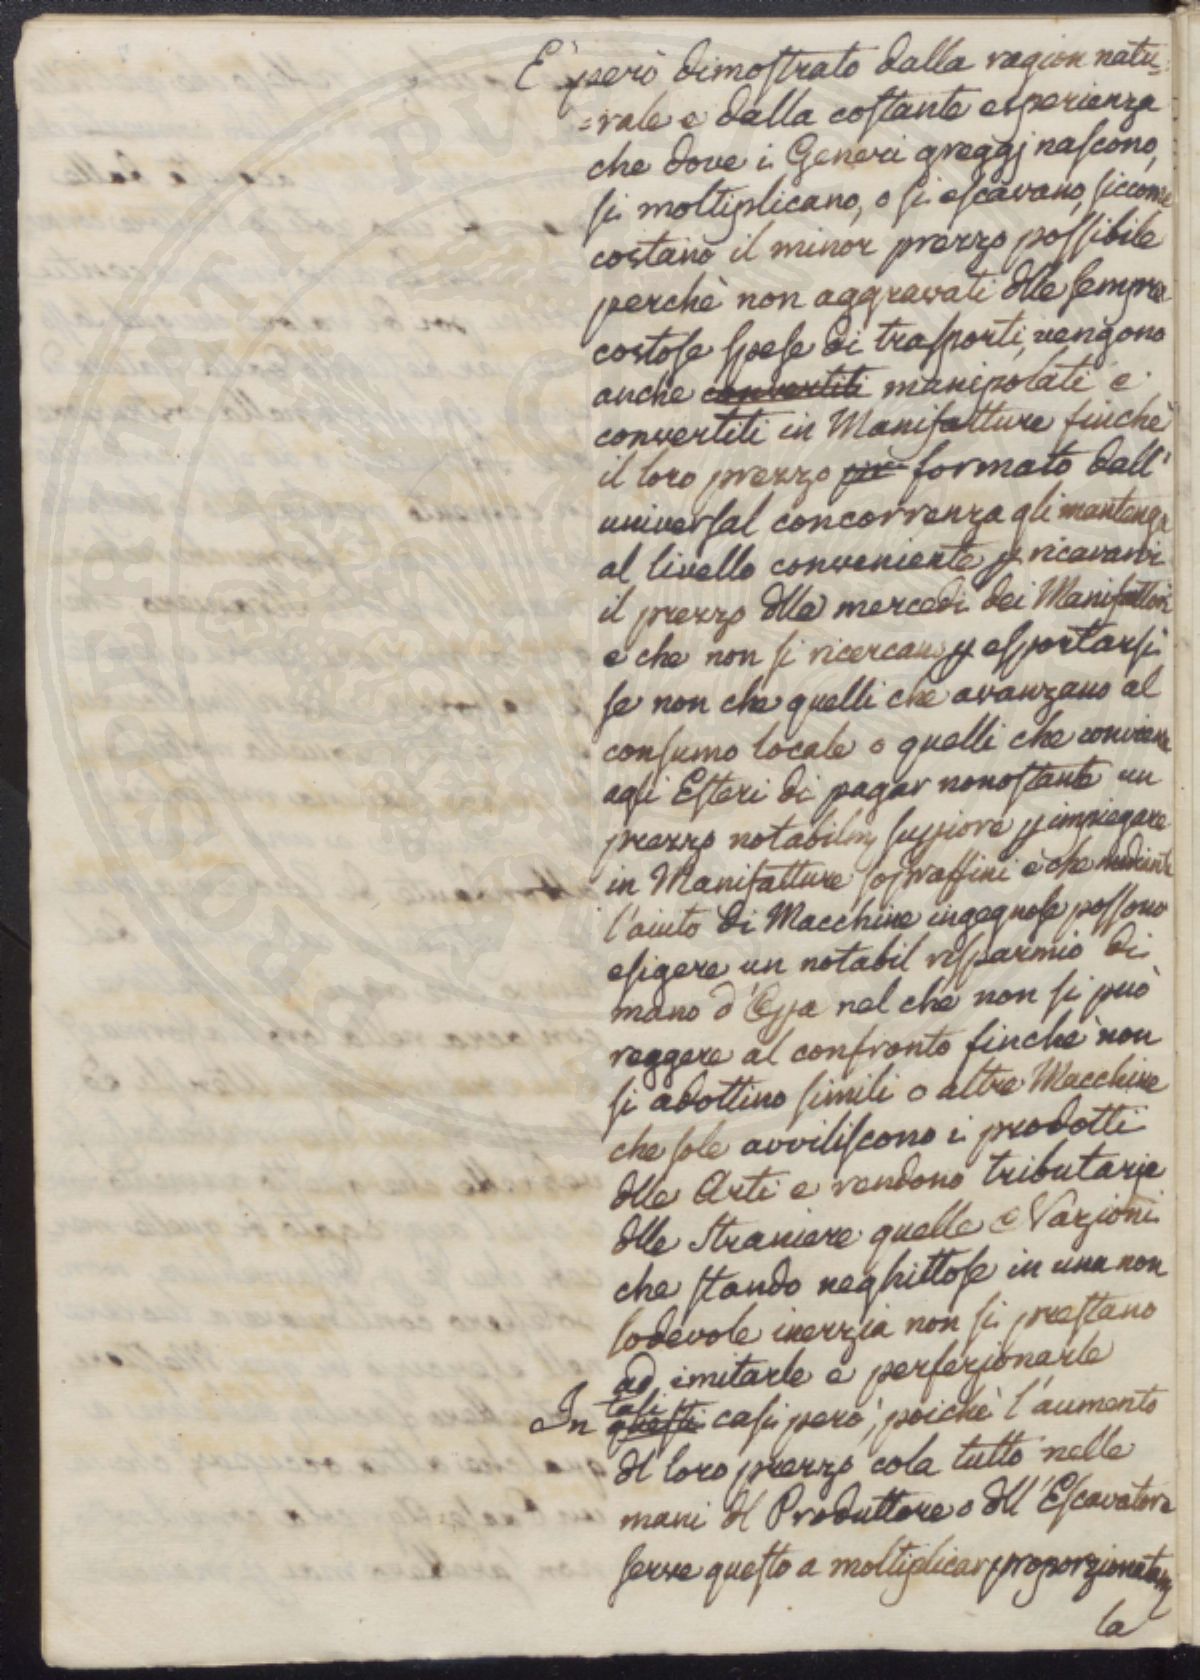 È però dimostrato dalla ragion natu=
=rale e dalla costante esperienza
che dove i Generi greggj nascono,
si moltiplicano, o si escavano, siccome
costano il minor prezzo possibile
perchè non aggravati dlle sempre
costose spese di trasporti, vengono
anche convertiti manipolati e
convertiti in Manifatture finchè
il loro prezzo per formato dall'
universal concorrenza gli mantenga
al livello conveniente p ricavarvi
il prezzo dlle mercedi dei Manifattori
e che non si ricercano p esportarsi
se non che quelli che avanzano al
consumo locale o quelli che conviene
agli Esteri di pagar nonostante un
prezzo notabilm suppiore p impiegare
in Manifatture sopraffini e che mediante
l'aiuto di Macchine ingegnose possono
esigere un notabil risparmio di
mano d'Opa nel che non si può
reggere al confronto finchè non
si adottino simili o altre Macchine
che sole avviliscono i prodotti
dlle Arti e rendono tributarie
dlle straniere quelle Nazioni
che stando neghittose in una non
lodevole inerzia non si prestano
ad imitarle e perfezionarle
tali
In questi casi però, poichè l'aumento
dl loro prezzo cola tutto nelle
mani dl Produttore o dll'Escavatore
serve questo a moltiplicar proporzionatam
la